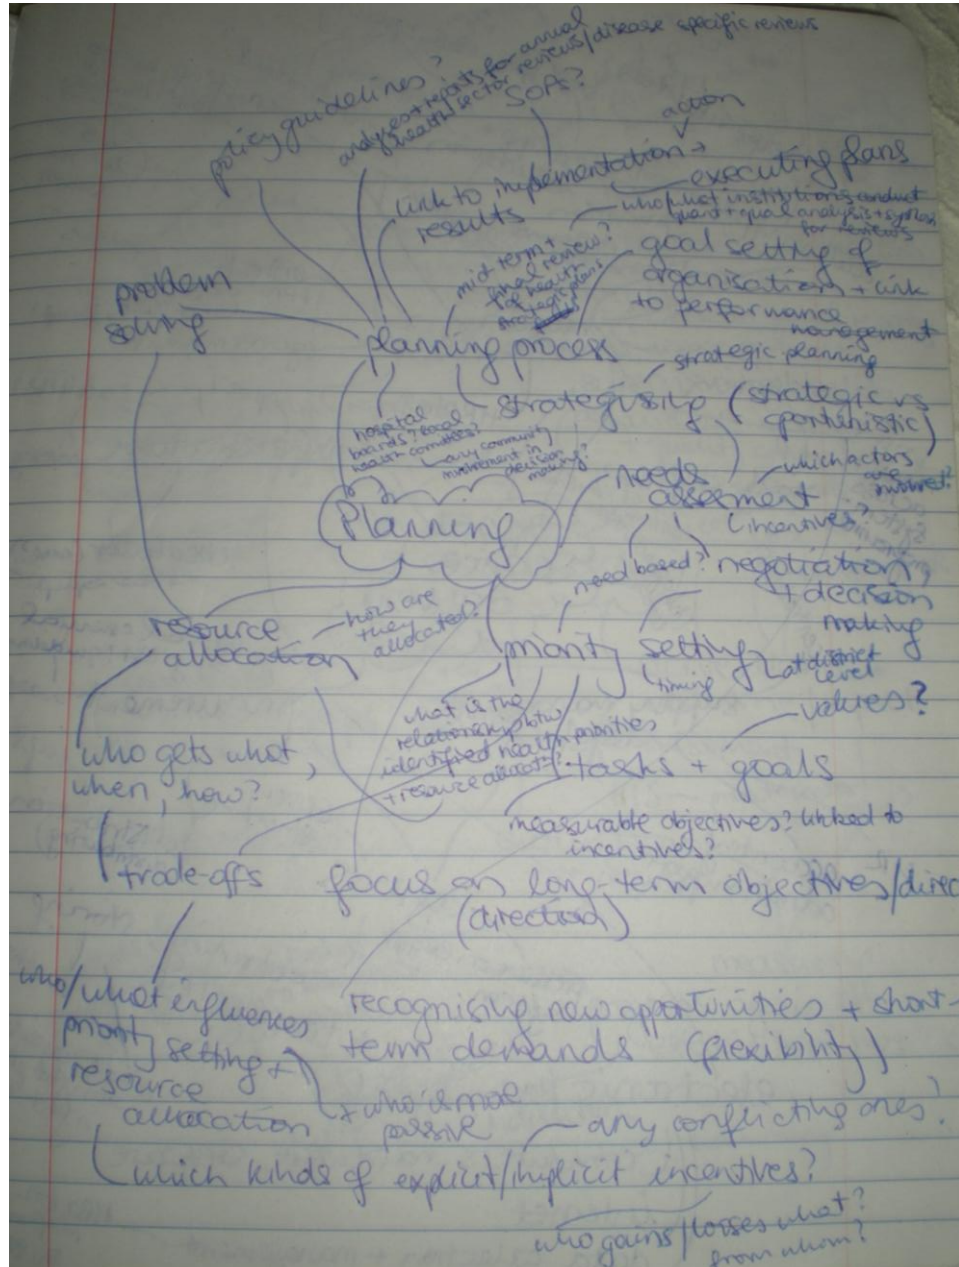 policy guidelines?
analyses + reports for annual
health sector reviews/disease specific reviews
SOPs?
action
link to implementation +
results
executing plans
who/what institutions conduct
quant + qual analysis + synthesis
for reviews
mid term +
final review?
for health
strategic plans
goal setting of
organisation + link
to performance
management
problem
solving
planning process
strategic planning
strategising (strategic vs
oportunistic)
hospital
boards? local
health committees?
any community
involvement in
decision
making?
needs
assesment
which actors
are
involved?
(incentives?
Planning
need based?
negotiation,
+ decision
making
resource
allocation
how are
they
allocated?
priority setting
timing
at district
level
values?
what is the
relationship btw
identified health priorities
+ resource allocat°?
tasks + goals
who gets what,
when, how?
measurable objectives? linked to
incentives?
trade-offs
focus on long-term objectives/direc
(direction)
who/what influences
priority setting +
resource
allocation
recognising new opportunities + short-
term demands (flexibility)
+ who is more
passive
any conflicting ones?
which kinds of explicit/implicit incentives?
who gains/losses what?
from whom?